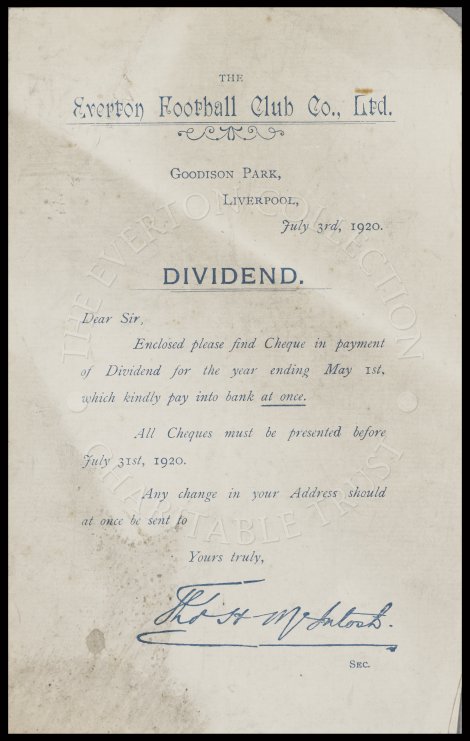 THE
Everton Football Club Co., Ltd.
GOODISON PARK,
LIVERPOOL,
July 3rd, 1920.
DIVIDEND.
Dear Sir,
Enclosed please find Cheque in payment
of Dividend for the year ending May 1st,
which kindly pay into bank at once.
All Cheques must be presented before
July 31st, 1920.
Any change in your Address should
at once be sent to
Yours truly,
Tho H McIntosh.
SEC.
THE EVERTON COLLECTION
CHARITABLE TRUST